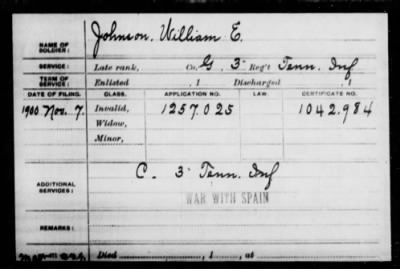 NAME OF SOLDIER: Johnson, William E.
SERVICE: Late rank, Co. G, 3 Reg't Tenn. Inf
TERM OF SERVICE: Enlisted , 1 Discharged , 1
DATE OF FILING. CLASS. APPLICATION NO. LAW. CERTIFICATE NO.
1900 Nov. 7. Invalid, 1257.025 1042.984
Widow,
Minor,
ADDITIONAL SERVICES: C. 3 Tenn. Inf
WAR WITH SPAIN
REMARKS:
Died , 1 , at